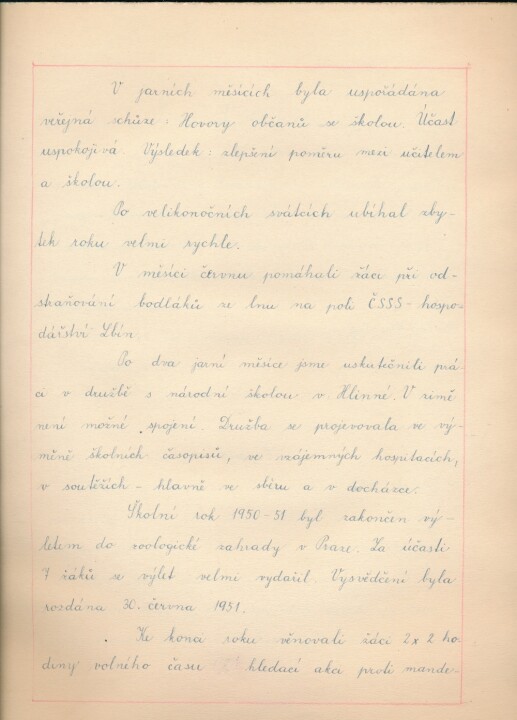 V jarních měsících byla uspořádána
veřejná schůze: Hovory občanů se školou. Účast
uspokojivá. Výsledek: zlepšení poměru mezi učitelem
a školou.
Po velikonočních svátcích ubíhal zby-
tek roku velmi rychle.
V měsíci červnu pomáhali žáci při od-
straňování bodláků ze lnu na poli ČSSS-hospo-
dářství Lbín
Po dva jarní měsíce jsme uskutečnili prá-
ci v družbě s národní školou v Hlinné. V zimě
není možné spojení. Družba se projevovala ve vý-
měně školních časopisů, ve vzájemných hospitacích,
v soutěžích - hlavně ve sběru a v docházce.
Školní rok 1950-51 byl zakončen vý-
letem do zoologické zahrady v Praze. Za účasti
7 žáků se výlet velmi vydařil. Vysvědčení byla
rozdána 30. června 1951.
Ke konci roku věnovali žáci 2x2 ho-
diny volného času hledací akci proti mande-